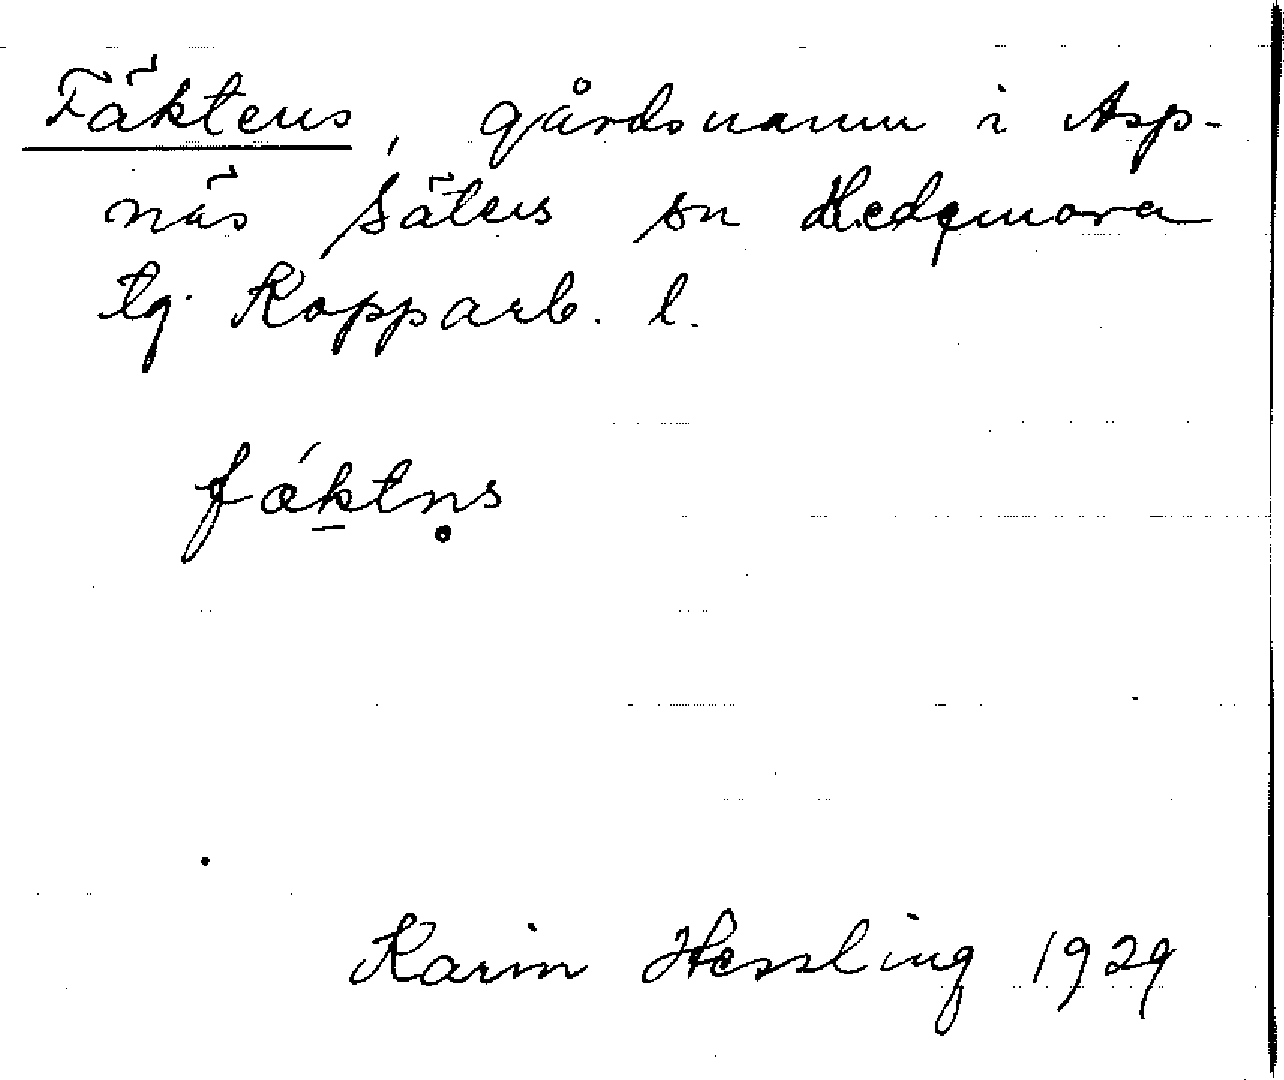 Fäktens, gårdsnamn i Asp-
näs Säters sn Hedemora
tg. Kopparb. l.
fǽk̠tṇs
Karin Hessling 1929